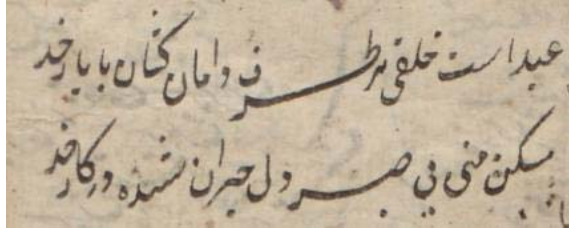 عید است خلقی هر طرف دامان کشان با یار خود
مسکین منی بی صبر و دل حیران شده در کار خود